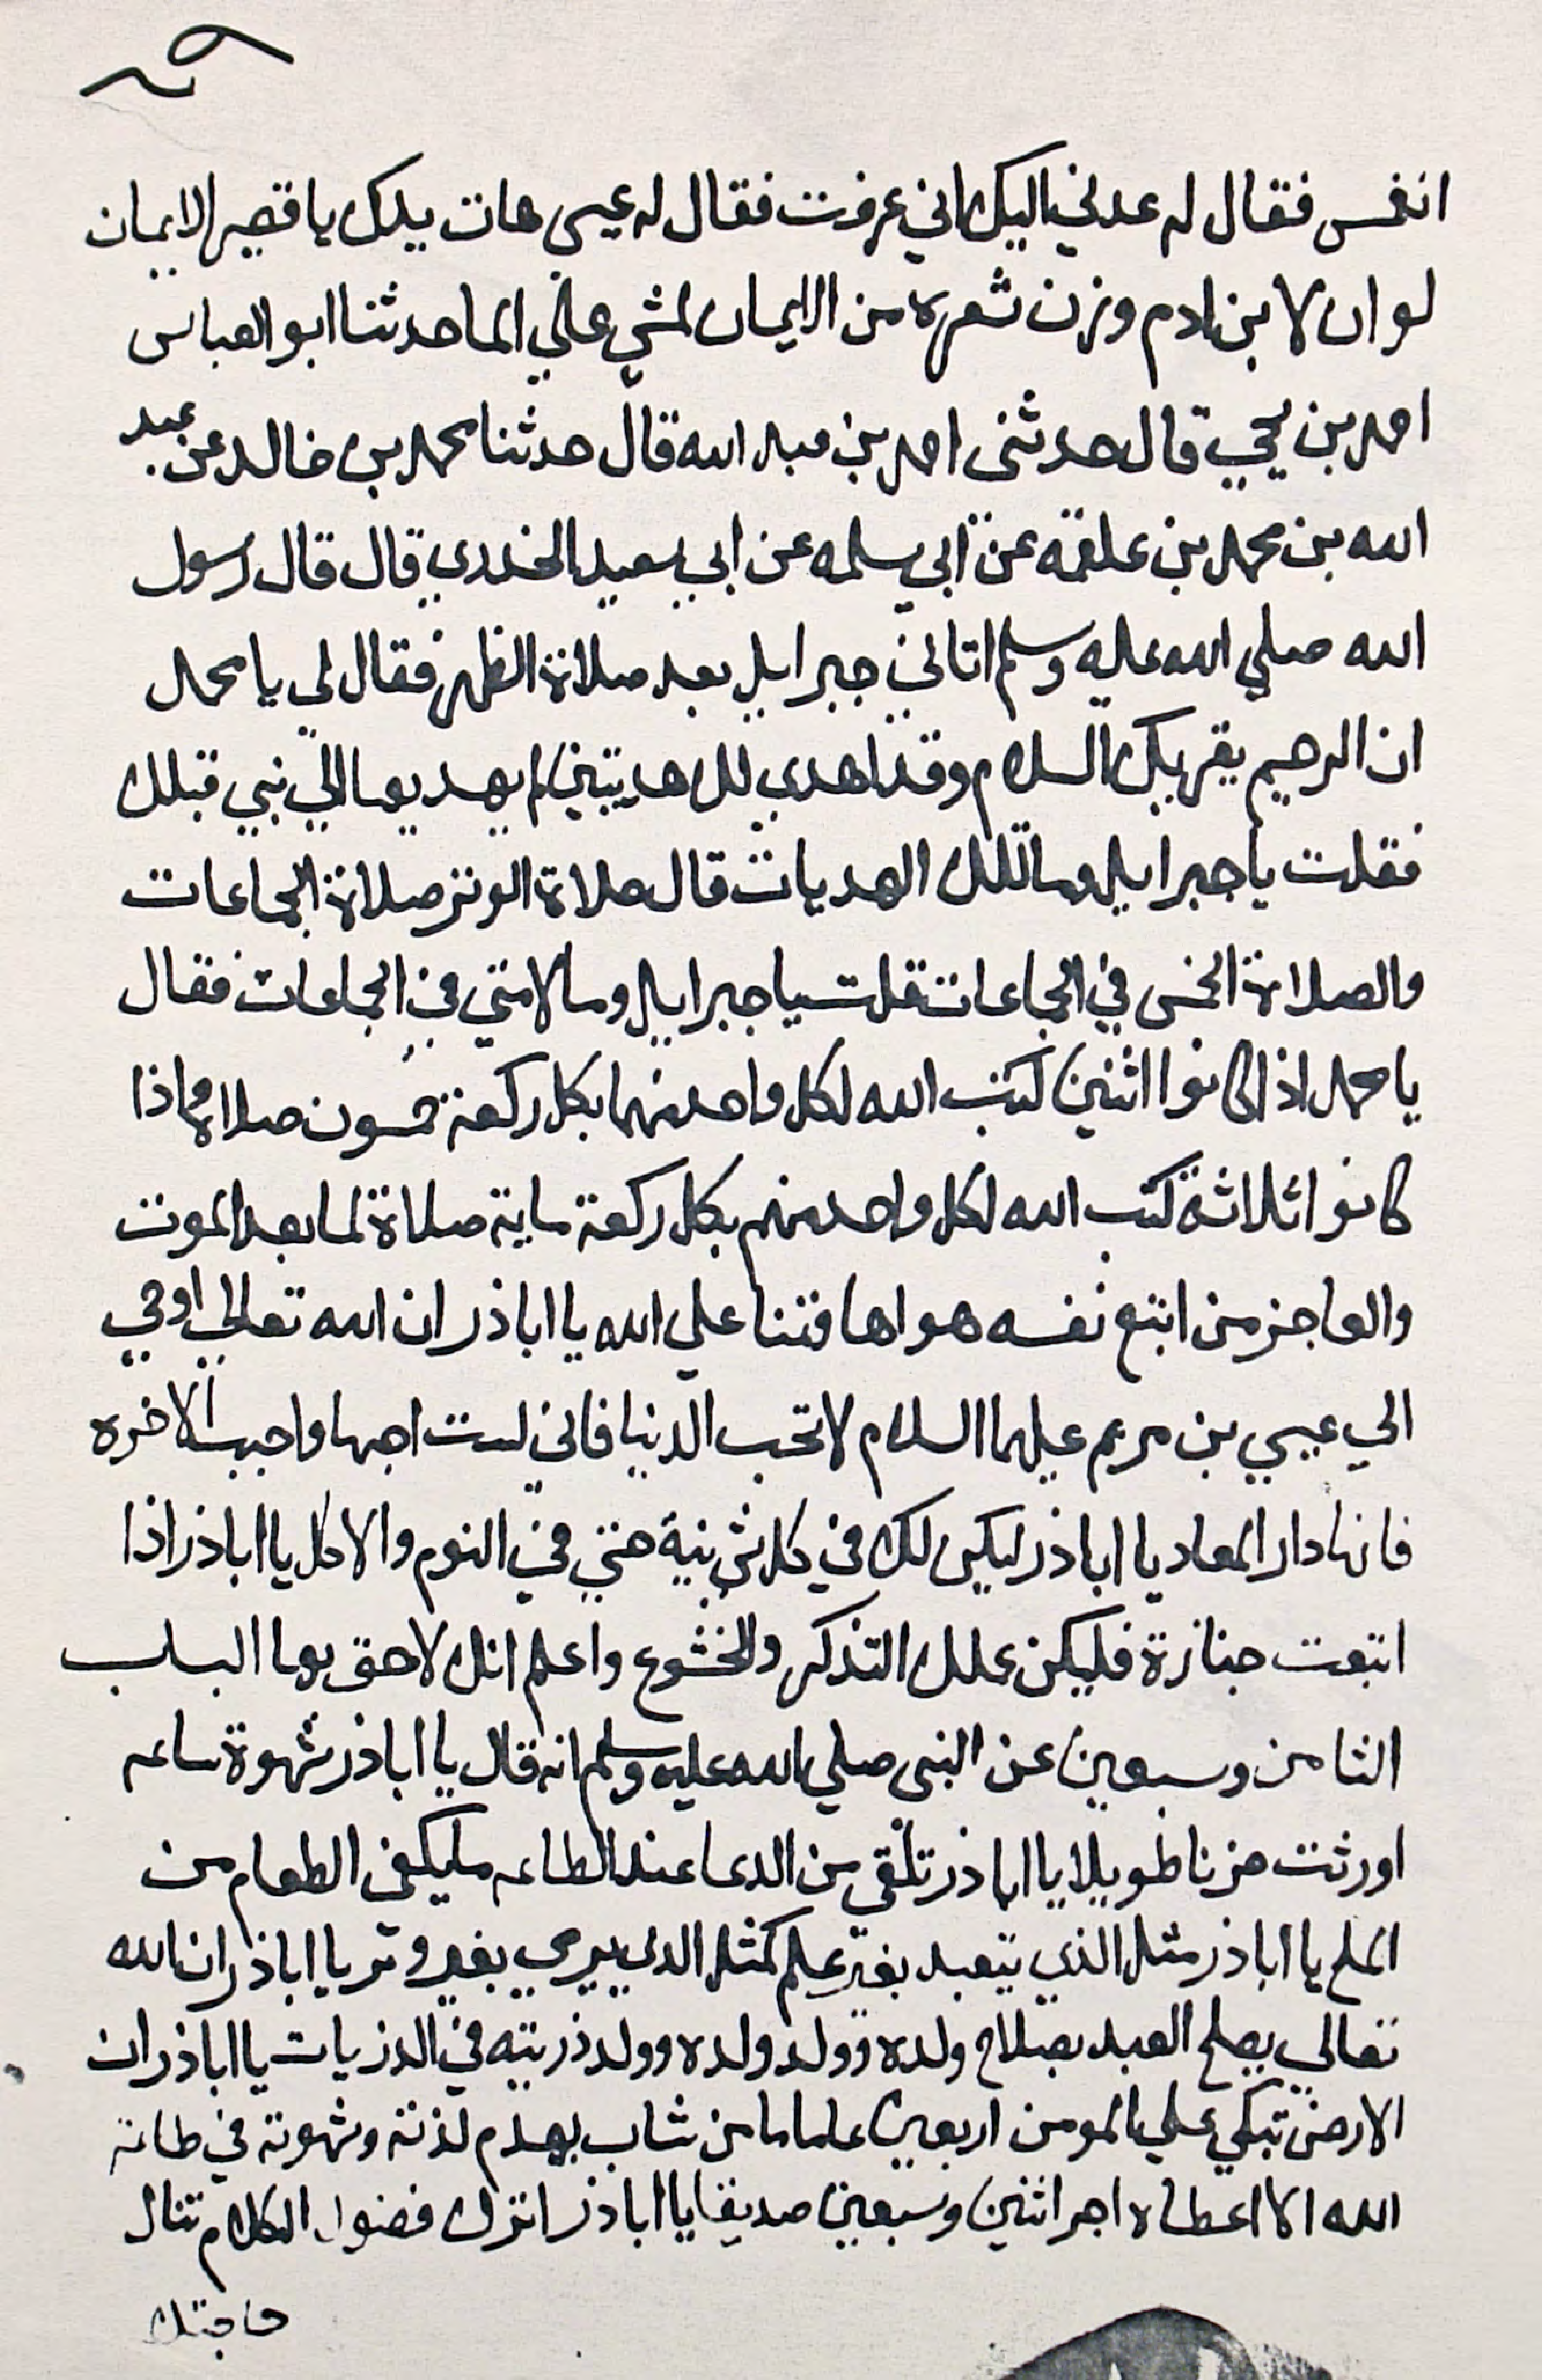 انغمس فقال له عدني اليك اني عرفت فقال له عيسى هات يدك يا قصير الايمان
لو ان لابن ادم وزن شعره من الايمان لمشي علي الما حدثنا ابو العباس
احمد بن يحيي قال حدثنى احمد بن عبد الله قال حدثنا محمد بن خالد عن عبد
الله بن محمد بن علقمه عن ابي سلمه عن ابي سعيد الخدري قال قال رسول
الله صلي الله عليه وسلم اتاني جبرايل بعد صلاة الظهر فقال لي يا محمد
ان الرحيم يقريك السلام وقد اهدي لك هديتين لم يهديهما الي نبي قبلك
فقلت يا جبرايل وما تلك الهديات قال صلاة الوتر صلاة الجماعات
والصلاة الخمس في الجماعات قلت يا جبرايل وما لامتي في الجماعات فقال
يا محمد اذا كانوا اثنين كتب الله لكل واحد منهما بكل ركعة خمسون صلاه واذا
كانوا ثلاثة كتب الله لكل واحد منهم بكل ركعة ماية صلاة لما بعد الموت
والعاجز من اتبع نفسه هواها فتنا علي الله يا اباذر ان الله تعالي اوحي
الي عيسي بن مريم عليهما السلام لا تحب الدنيا فاني لست احبها واحبب الاخره
فانها دار المعاد يا اباذر ليكن لك في كل شي نية حتي في النوم والاكل يا اباذر اذا
اتبعت جنازة فليكن عملك التذكر والخشوع واعلم انك لاحق بها الباب
الثامن وسبعين عن النبى صلي الله عليه وسلم انه قال يا اباذر شهوة ساعه
اورثت حزنا طويلا يا اباذر تلقي من الدعا عند الطاعه ما يكفي الطعام من
الملح يا اباذر مثل الذي يتعبد بغير علم كمثل الدي يرمي بغير وتر يا اباذر ان الله
تعالي يصلح العبد بصلاح ولده وولد ولده وولد ذريته في الذريات يا اباذر ان
الارض تبكي علي المومن اربعين عاما ما من شاب يهدم لذته وشهوته في طاعة
الله الا اعطاه اجر اثنين وسبعين صديقا يا اباذر اترك فضول الكلام تنال
حاجتك